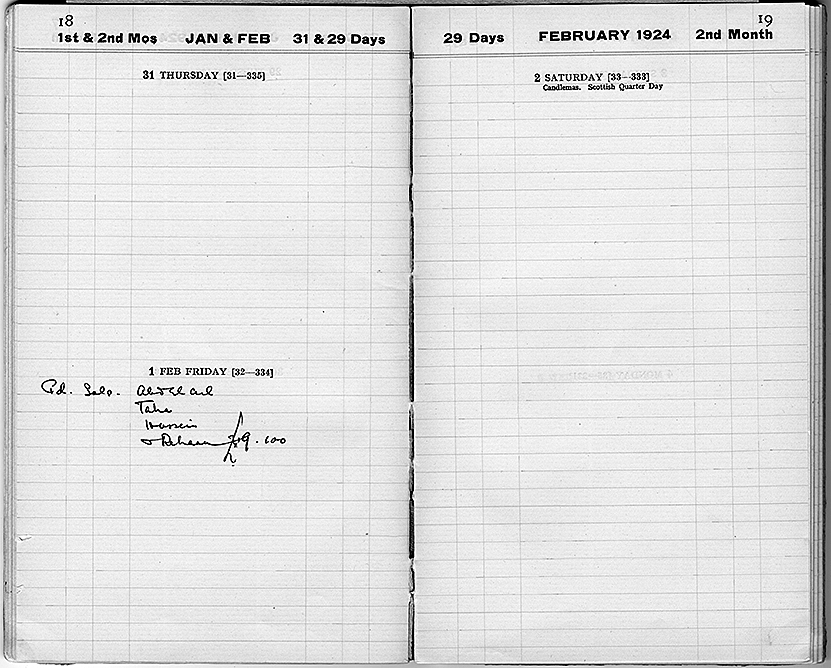 18
1st & 2nd Mos JAN & FEB 31 & 29 Days
31 THURSDAY [31—335]
1 FEB FRIDAY [32—334]
Pd. Sals. Abd el Aal
Taha
Hussein
& Rehaan 9.100
19
29 Days FEBRUARY 1924 2nd Month
2 SATURDAY [33—333]
Candlemas. Scottish Quarter Day